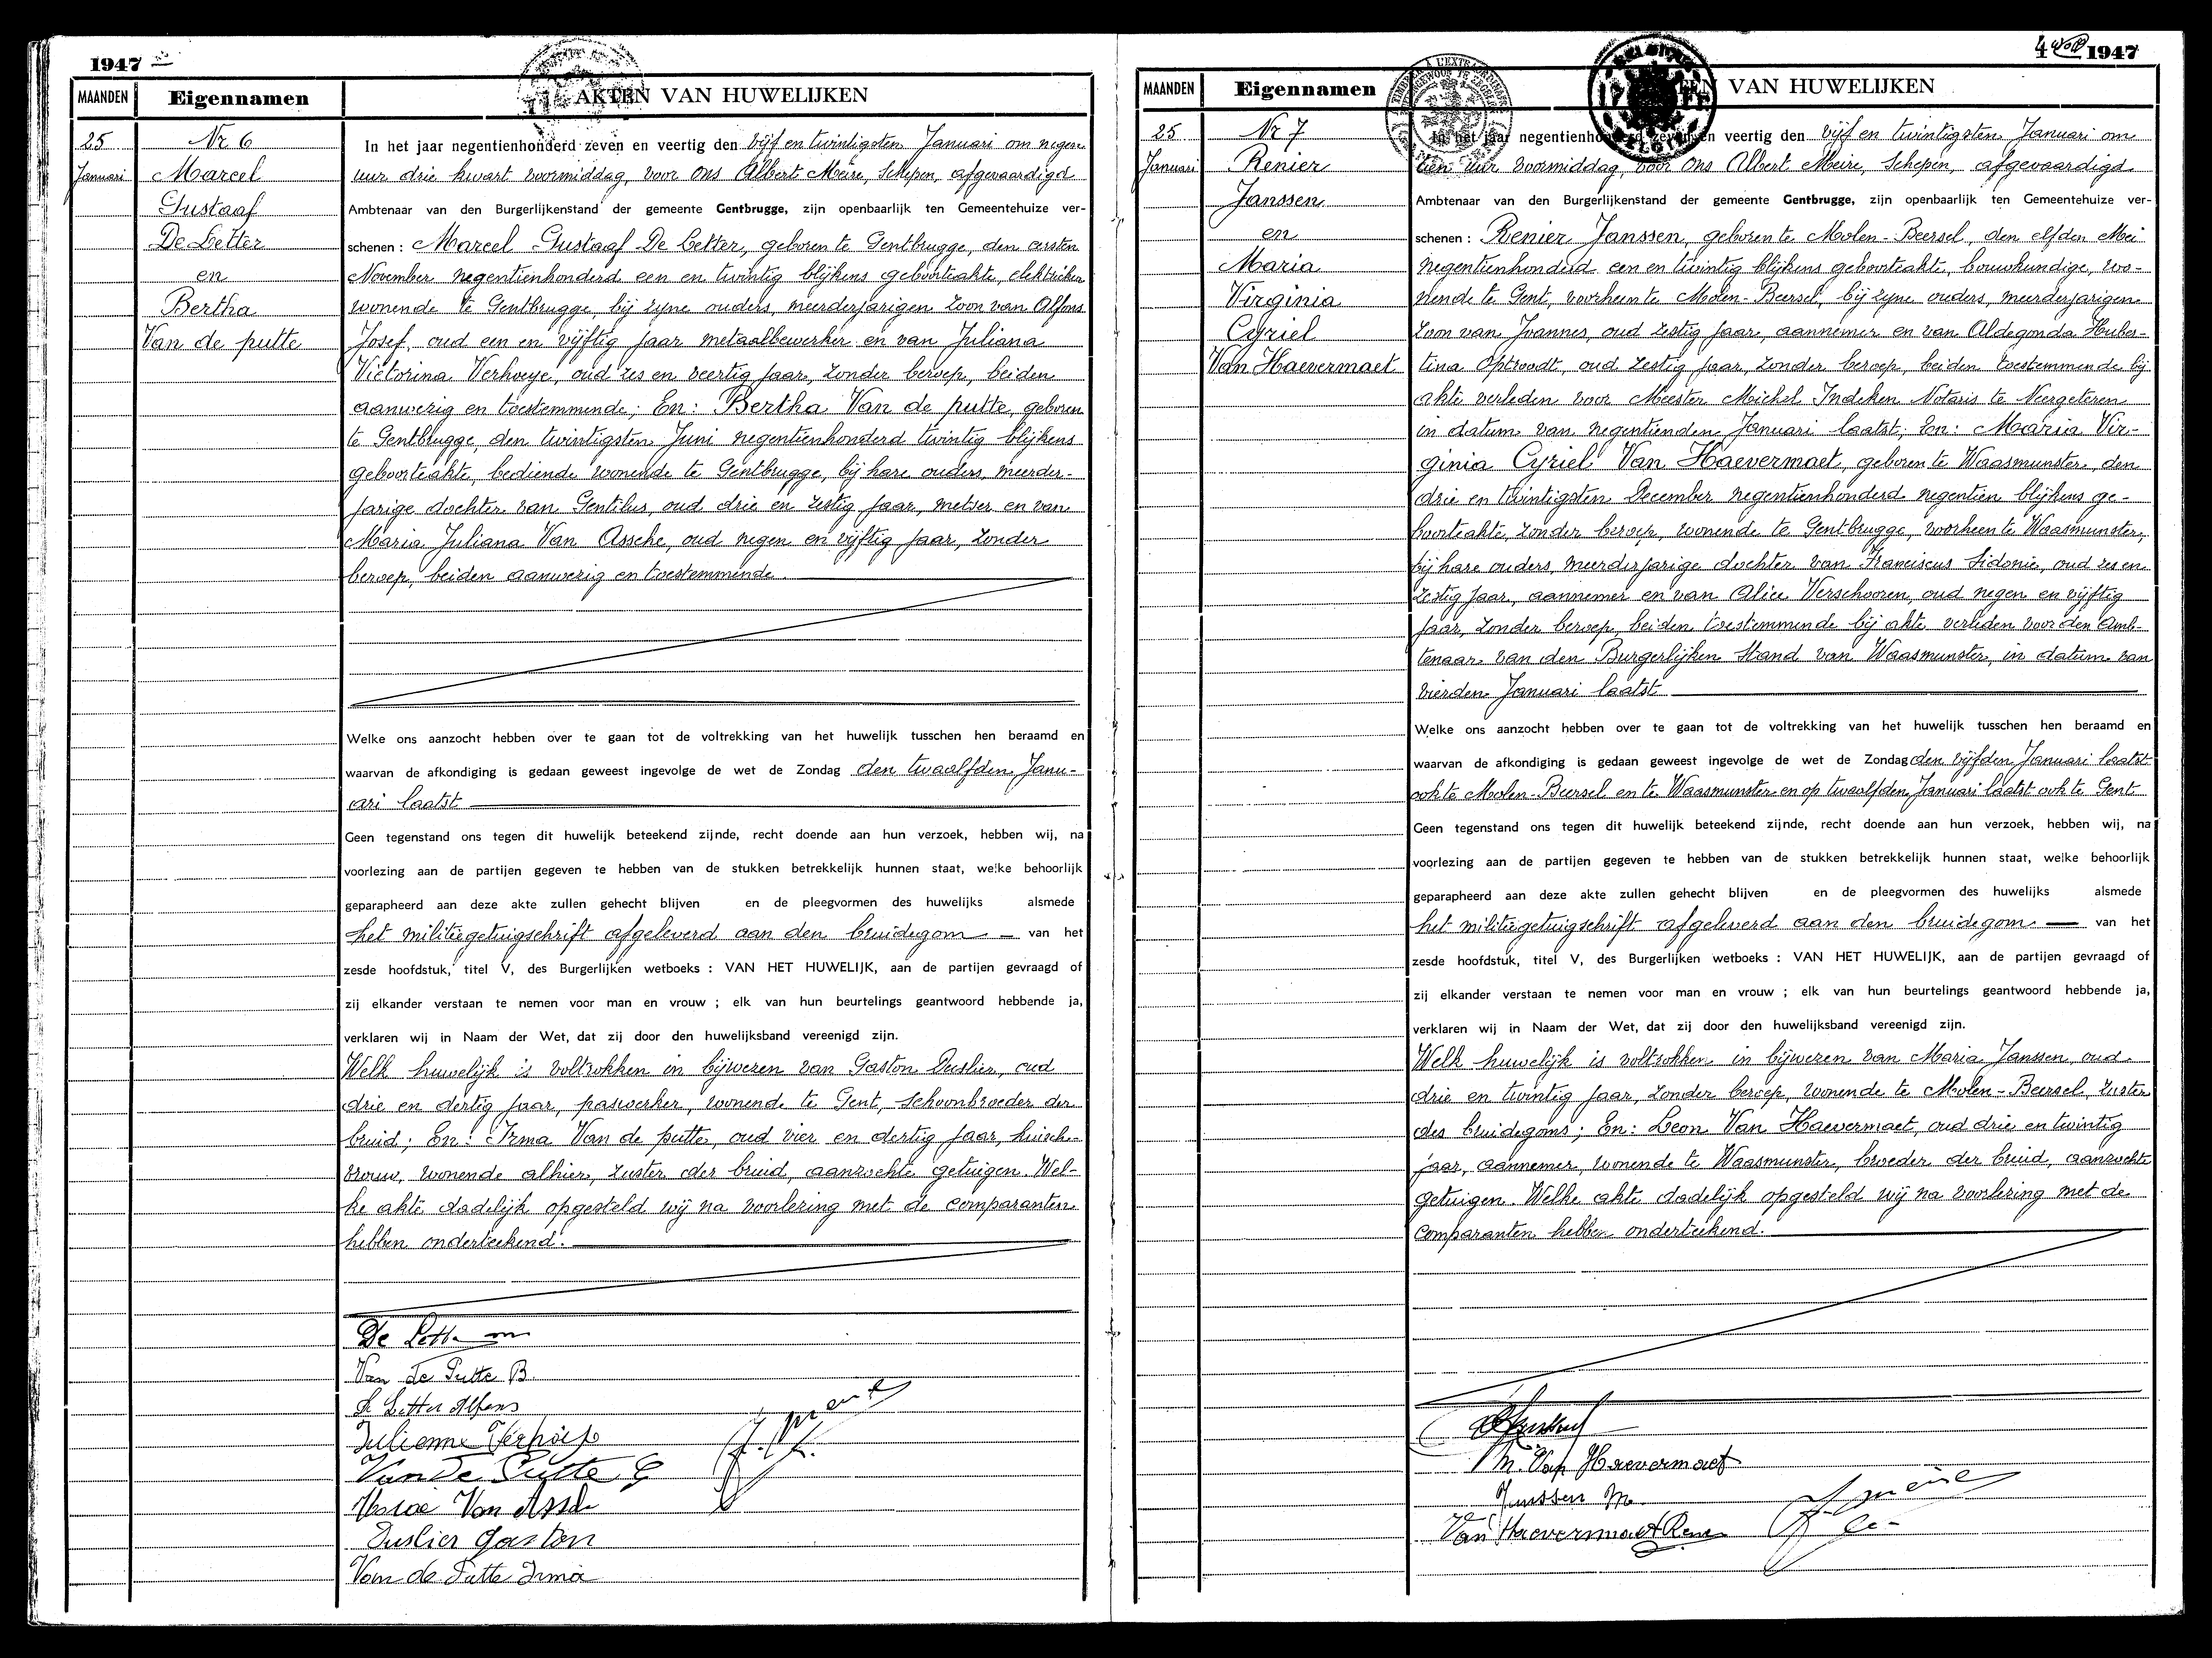 1947
MAANDEN
Eigennamen
AKTEN VAN HUWELIJKEN
25
Januari
Nr 6
Marcel
Gustaaf
De Letter
en
Bertha
Van de putte
In het jaar negentienhonderd zeven en veertig den vijf en twintigsten Januari om negen
uur drie kwart voormiddag, voor ons Albert Meire, Schepen, afgevaardigd
Ambtenaar van den Burgerlijkenstand der gemeente Gentbrugge, zijn openbaarlijk ten Gemeentehuize ver-
schenen : Marcel Gustaaf De Letter, geboren te Gentbrugge, den eersten
November negentienhonderd een en twintig blijkens geboorteakte, elektrieker
wonende te Gentbrugge, bij zijne ouders, meerderjarigen zoon van Alfons
Josef, oud een en vijftig jaar metaalbewerker en van Juliana
Victorina Verhoeye, oud zes en veertig jaar, zonder beroep, beiden
aanwezig en toestemmende; En: Bertha Van de putte, geboren
te Gentbrugge, den twintigsten Juni negentienhonderd twintig blijkens
geboorteakte, bediende wonende te Gentbrugge, bij hare ouders, meerder-
jarige dochter van Gentilus, oud drie en zestig jaar, metser en van
Maria Juliana Van Assche, oud negen en vijftig jaar, zonder
beroep, beiden aanwezig en toestemmende.
Welke ons aanzocht hebben over te gaan tot de voltrekking van het huwelijk tusschen hen beraamd en
waarvan de afkondiging is gedaan geweest ingevolge de wet de Zondag den twaalfden Janu-
ari laatst
Geen tegenstand ons tegen dit huwelijk beteekend zijnde, recht doende aan hun verzoek, hebben wij, na
voorlezing aan de partijen gegeven te hebben van de stukken betrekkelijk hunnen staat, welke behoorlijk
geparapheerd aan deze akte zullen gehecht blijven en de pleegvormen des huwelijks alsmede
het militiegetuigschrift afgeleverd aan den bruidegom — van het
zesde hoofdstuk, titel V, des Burgerlijken wetboeks : VAN HET HUWELIJK, aan de partijen gevraagd of
zij elkander verstaan te nemen voor man en vrouw ; elk van hun beurtelings geantwoord hebbende ja,
verklaren wij in Naam der Wet, dat zij door den huwelijksband vereenigd zijn.
Welk huwelijk is voltrokken in bijwezen van Gaston Duslier, oud
drie en dertig jaar, paswerker, wonende te Gent, schoonbroeder der
bruid; En: Irma Van de putte, oud vier en dertig jaar, huisch-
vrouw, wonende alhier, zuster der bruid, aanzochte getuigen. Wel-
ke akte dadelijk opgesteld wij na voorlezing met de comparanten
hebben onderteekend.
De Letter m
Van de Putte B.
De Letter Alfons
Julienne Verhoeye
Van De Putte G
Maria Van Assche
Duslier Gaston
Van de Putte Irma
1947
MAANDEN
Eigennamen
VAN HUWELIJKEN
25
Januari
Nr 7
Renier
Janssen
en
Maria
Virginia
Cyriel
Van Haevermaet
In het jaar negentienhonderd zeven en veertig den vijf en twintigsten Januari om
tien uur voormiddag, voor ons Albert Meire, Schepen, afgevaardigd
Ambtenaar van den Burgerlijkenstand der gemeente Gentbrugge, zijn openbaarlijk ten Gemeentehuize ver-
schenen : Renier Janssen, geboren te Molen-Beersel, den elfden Mei
negentienhonderd een en twintig blijkens geboorteakte, bouwkundige, wo-
nende te Gent, voorheen te Molen-Beersel, bij zijne ouders, meerderjarigen
zoon van Joannes, oud zestig jaar, aannemer en van Aldegonda Huber-
tina Optroodt, oud zestig jaar, zonder beroep, beiden toestemmende bij
akte verleden voor Meester Michel Indeken Notaris te Neergeteren
in datum van negentienden Januari laatst; En: Maria Vir-
ginia Cyriel Van Haevermaet, geboren te Waasmunster, den
drie en twintigsten December negentienhonderd negentien blijkens ge-
boorteakte, zonder beroep, wonende te Gentbrugge, voorheen te Waasmunster,
bij hare ouders, meerderjarige dochter van Franciscus Sidonie, oud zes en
zestig jaar, aannemer en van Alice Verschooren, oud negen en vijftig
jaar, zonder beroep, beiden toestemmende bij akte verleden voor den Amb-
tenaar van den Burgerlijken Stand van Waasmunster, in datum van
vierden Januari laatst
Welke ons aanzocht hebben over te gaan tot de voltrekking van het huwelijk tusschen hen beraamd en
waarvan de afkondiging is gedaan geweest ingevolge de wet de Zondag den vijfden Januari laatst
ook te Molen-Beersel en te Waasmunster en op twaalfden Januari laatst ook te Gent
Geen tegenstand ons tegen dit huwelijk beteekend zijnde, recht doende aan hun verzoek, hebben wij, na
voorlezing aan de partijen gegeven te hebben van de stukken betrekkelijk hunnen staat, welke behoorlijk
geparapheerd aan deze akte zullen gehecht blijven en de pleegvormen des huwelijks alsmede
het militiegetuigschrift afgeleverd aan den bruidegom — van het
zesde hoofdstuk, titel V, des Burgerlijken wetboeks : VAN HET HUWELIJK, aan de partijen gevraagd of
zij elkander verstaan te nemen voor man en vrouw ; elk van hun beurtelings geantwoord hebbende ja,
verklaren wij in Naam der Wet, dat zij door den huwelijksband vereenigd zijn.
Welk huwelijk is voltrokken in bijwezen van Maria Janssen, oud
drie en twintig jaar, zonder beroep, wonende te Molen-Beersel, zuster
des bruidegoms; En: Leon Van Haevermaet, oud drie en twintig
jaar, aannemer, wonende te Waasmunster, broeder der bruid, aanzochte
getuigen. Welke akte dadelijk opgesteld wij na voorlezing met de
comparanten hebben onderteekend.
M. Van Haevermaet
Janssen M.
Van Haevermaet